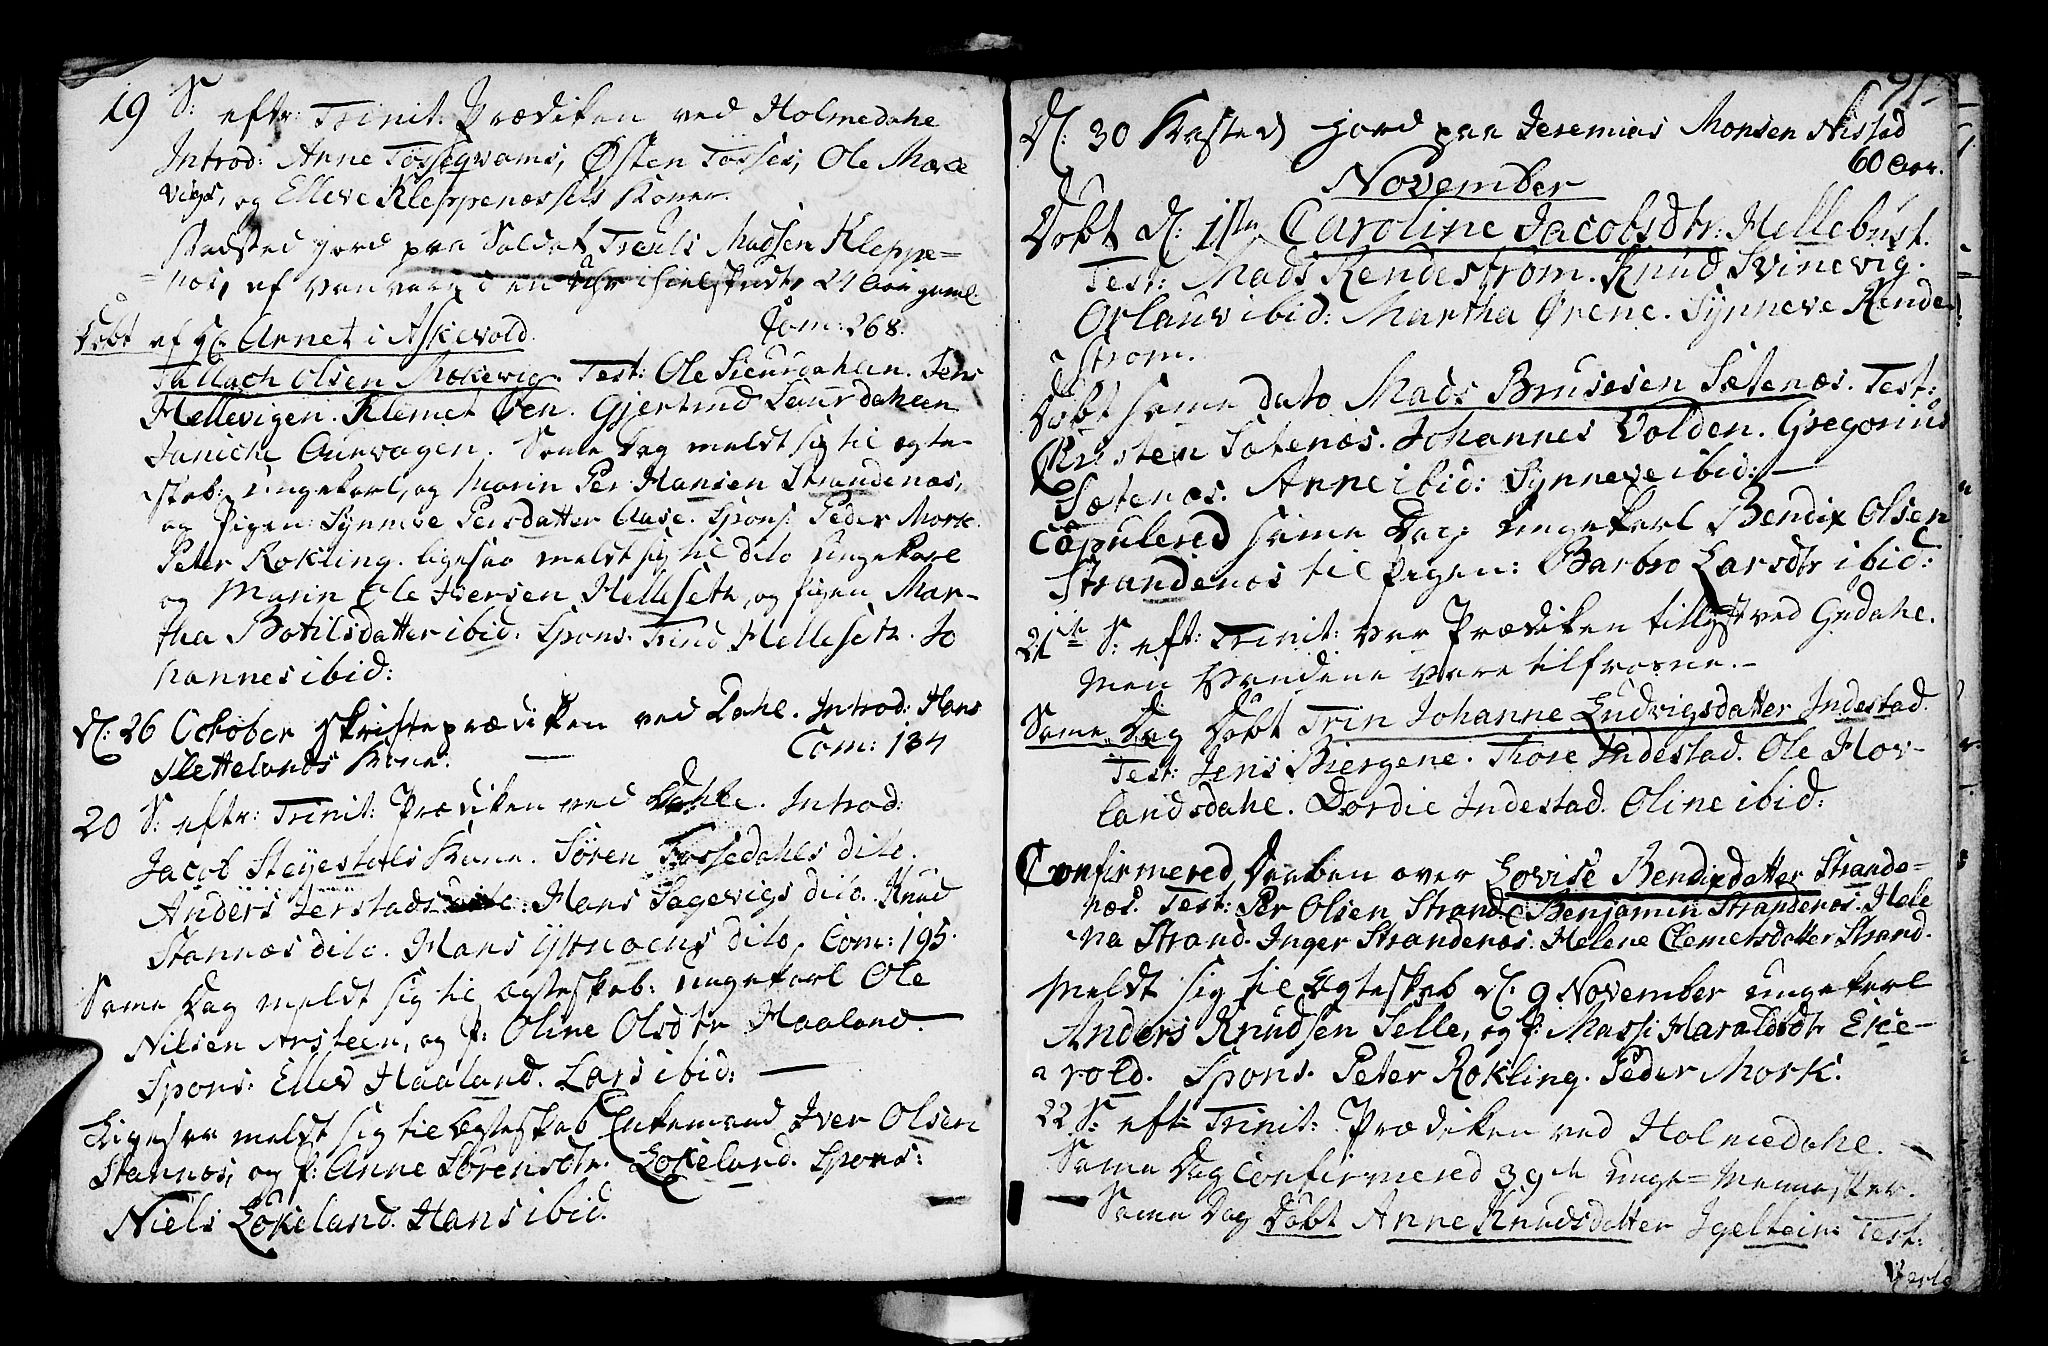 19 S: eftr: Trinit: Prædiken ved Holmedahle
Introd: Anne Tössegvams, Østen Tösses, Ole Mære
vigs, og Elleve Kleppenæssets Koner.
Kasted jord paa Soldat Troels Madsen Kleppe=
=næs, af van vare i en 24 Aar gaml
Com: 268.
Döbt af Hr. Arnet i Askevold
Tallach Olsen Mærevig. Test: Ole Sieurdahlen. Jens
Hellevigen. Klemet Øen. Gjertrud Saurdahlen
Janiche Aurvagen. Same Dag meldt sig til ægte-
skab: Ungekarl, og Marin Per Hansen Strandenæs,
og Pigen: Synneve Persdatter Aase. Spons: Peder Mork.
Peter Rokling. ligesaa meldt sig til dito Ungekarl
og Marin Ole Iversen Helleseth, og pigen Mar-
tha Botilsdatter ibid. Spons. Trind Helleseth. Jo
hannes ibid:
D: 26 October Skrifteprædiken ved Dahle. Introd: Hans
Slettelands Kone. — Com: 134
20 S: eftr: Trinit: Prædiken ved Dahle. Introd:
Jacob Steyestøls Kone. Sören Fossedahls dito.
Anders Jerstads dito: Hans Sagevigs dito. Knud
Stannæs dito. Hans Yttroens dito, Com: 195.
Same Dag meldt sig til ægteskab: ungekarl Ole
Nilsen Arsteen, og P: Oline Olsdtr Haaland. —
Spons: Ellev Haaland. Lars ibid: —
Ligesaa meldt sig til ægteskab Enkemand Iver Olsen
Stannæs, og P: Anne Sörensdtr. Lökeland. Spons:
Niels Lökeland. Hans ibid.
91
D: 30 Kasted jord paa Jeremias Monsen Nistad
60 Aar.
November
Döbt D: 1ste Caroline Jacobsdtr: Hellebust.
Test: Mads Rendeström. Knud Svinevig.
Orlauv ibid: Martha Ørene. Synneve Rende
ström.
Döbt same dato Mads Brusesen Sætenæs. Test:
Christen Sætenæs. Johannes Volden. Gregorius
Sætenæs. Anne ibid: Synneve ibid: —
Copulered same Dag: ungekarl Bendix Olsen
Strandenæs til Pigen: Barbro Larsdtr ibid:
21de S: eft: Trinit: var Prædiken tillyst ved Gudahle.
Men Vandene vare tilfrosne. —
Same Dag Döbt Trin Johanne Ludvigsdatter Indestad.
Test: Jens Biergene. Thore Indestad. Ole Hov-
landsdahle. Dordie Indestad. Oline ibid:
Confirmered Daaben over Lovise Bendixdatter Strande-
næs. Test: Per Olsen Strand. Benjamin Strandenæs. Hele
na Strand. Inger Strandenæs. Helene Clemetsdatter Strand.
Meldt sig til Ægteskab D: 9 November ungekarl
Anders Knudsen Selle, og P: Massi Haraldsdtr Eke-
vold. Spons. Peter Rokling. Peder Mork.
22 S: eft: Trinit: Prædiken ved Holmedahle. —
Same Dag Confirmered 39ve unge=Mennesker.
— Same Dag Döbt Anne Knudsdatter Igeltein. Test: